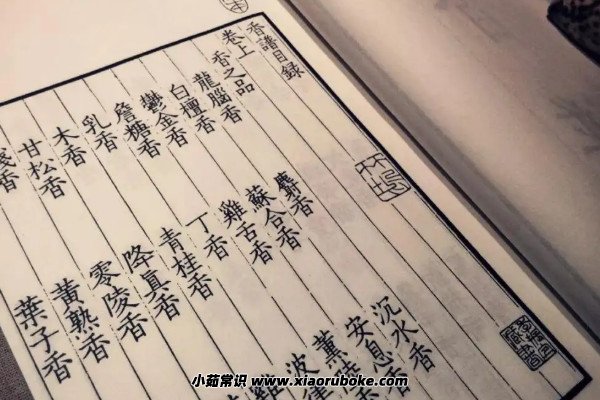 香譜目錄
卷上
香之品
龍腦香 麝香 沉水香
白檀香 蘇合香 安息香
鬱金香 雞舌香 薰
詹糖香 丁香 波
乳香 青桂香
木香 降真香
甘松香 零陵香
香 黃熟香
葉子香
小茹常识 www.xiaoruboke.com